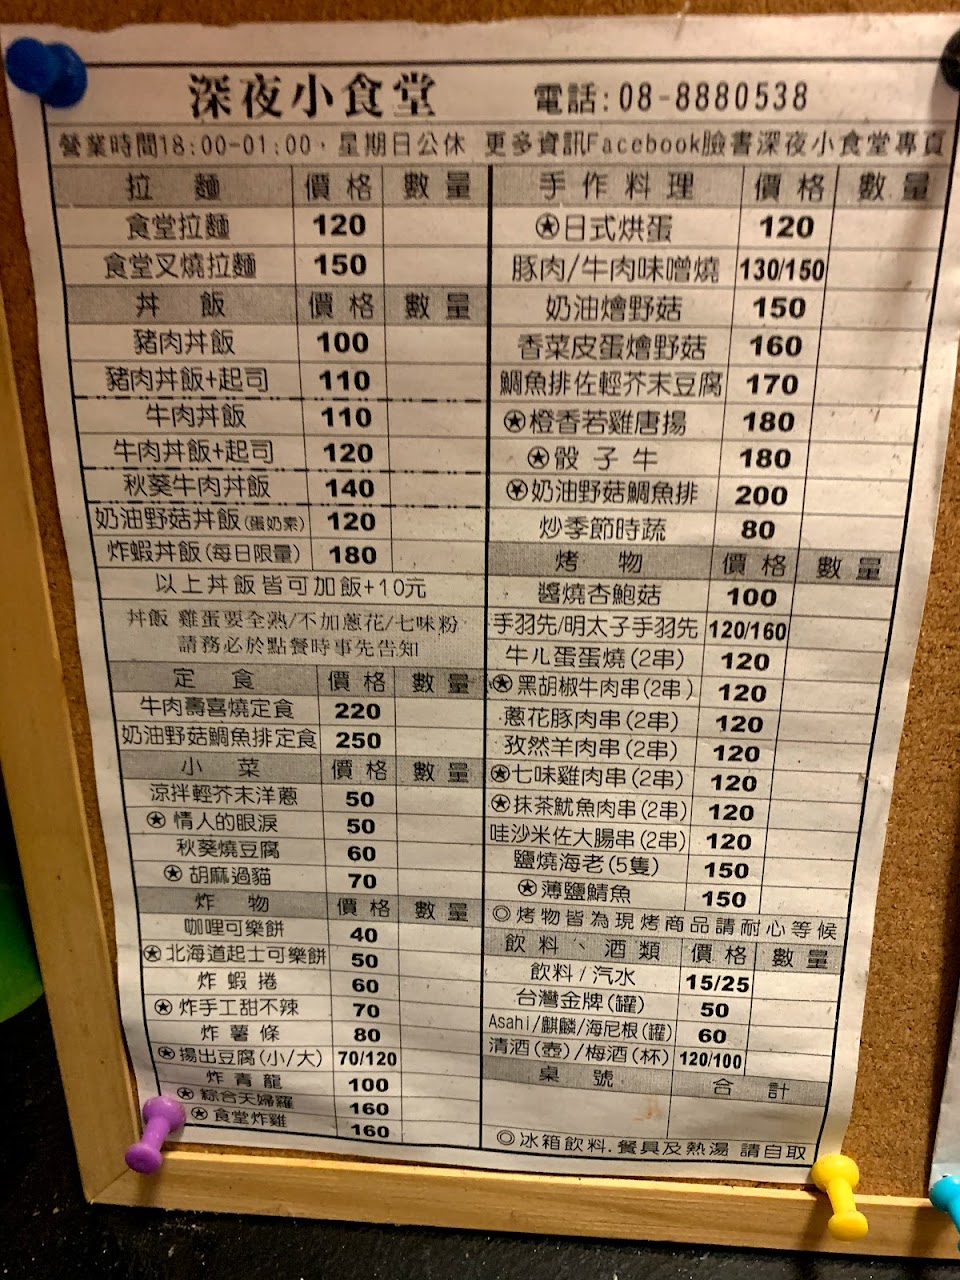 深夜小食堂 電話:08-8880538
營業時間18:00-01:00，星期日公休 更多資訊Facebook臉書深夜小食堂專頁
拉麵 價格 數量
食堂拉麵 120
食堂叉燒拉麵 150
丼飯 價格 數量
豬肉丼飯 100
豬肉丼飯+起司 110
牛肉丼飯 110
牛肉丼飯+起司 120
秋葵牛肉丼飯 140
奶油野菇丼飯(蛋奶素) 120
炸蝦丼飯(每日限量) 180
以上丼飯皆可加飯+10元
丼飯 雞蛋要全熟/不加蔥花/七味粉
請務必於點餐時事先告知
定食 價格 數量
牛肉壽喜燒定食 220
奶油野菇鯛魚排定食 250
小菜 價格 數量
涼拌輕芥末洋蔥 50
✪情人的眼淚 50
秋葵燒豆腐 60
✪胡麻過貓 70
炸物 價格 數量
咖哩可樂餅 40
✪北海道起士可樂餅 50
炸蝦捲 60
✪炸手工甜不辣 70
炸薯條 80
✪揚出豆腐(小/大) 70/120
炸青龍 100
✪綜合天婦羅 160
✪食堂炸雞 160
手作料理 價格 數量
✪日式烘蛋 120
豚肉/牛肉味噌燒 130/150
奶油燴野菇 150
香菜皮蛋燴野菇 160
鯛魚排佐輕芥末豆腐 170
✪橙香若雞唐揚 180
✪骰子牛 180
✪奶油野菇鯛魚排 200
炒季節時蔬 80
烤物 價格 數量
醬燒杏鮑菇 100
手羽先/明太子手羽先 120/160
牛ㄦ蛋蛋燒(2串) 120
✪黑胡椒牛肉串(2串) 120
蔥花豚肉串(2串) 120
孜然羊肉串(2串) 120
✪七味雞肉串(2串) 120
✪抹茶魷魚肉串(2串) 120
哇沙米佐大腸串(2串) 120
鹽燒海老(5隻) 150
✪薄鹽鯖魚 150
◎烤物皆為現烤商品請耐心等候
飲料、酒類 價格 數量
飲料/汽水 15/25
台灣金牌(罐) 50
Asahi/麒麟/海尼根(罐) 60
清酒(壺)/梅酒(杯) 120/100
桌號 合計
◎冰箱飲料.餐具及熱湯 請自取